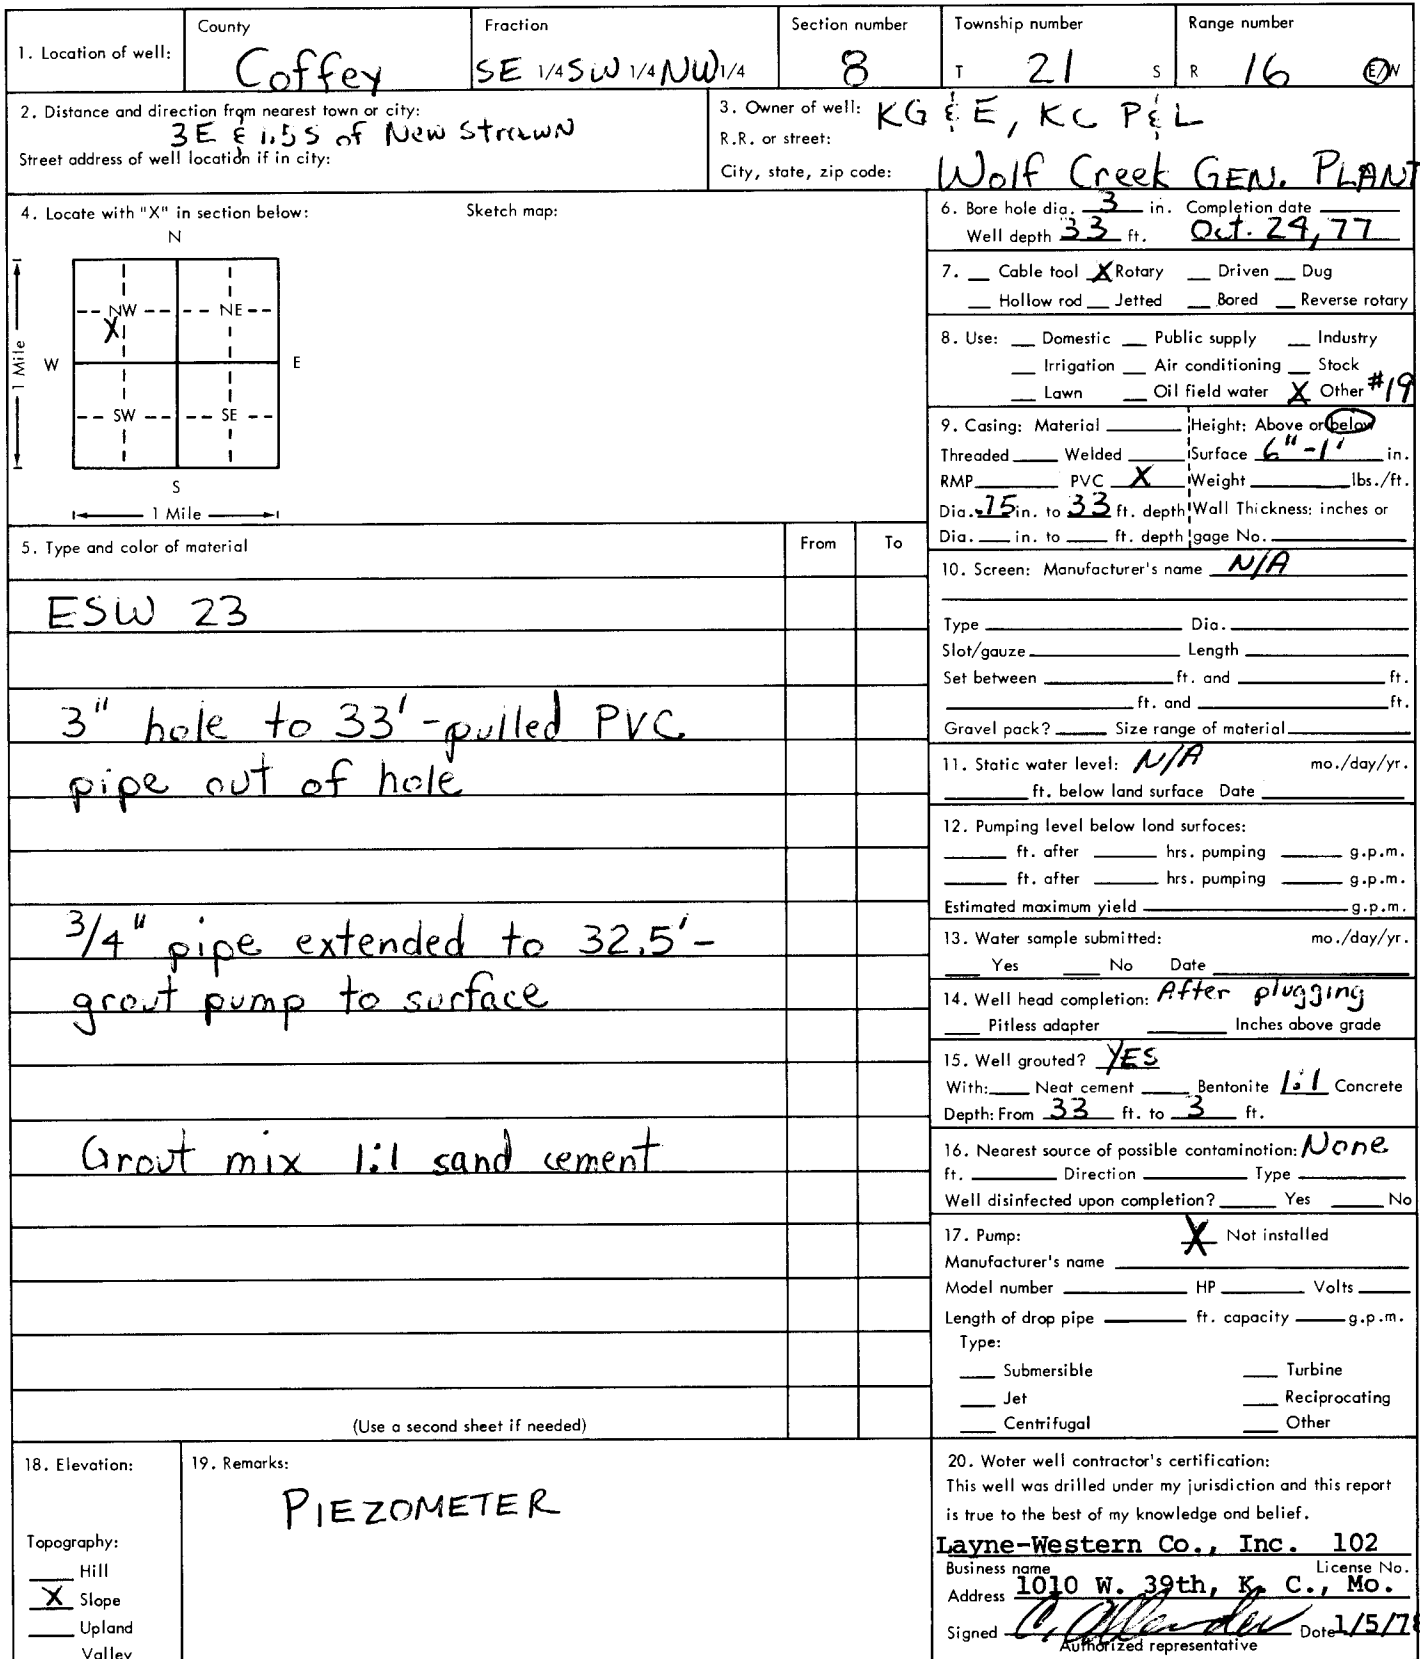 1. Location of well: County Coffey Fraction SE 1/4 SW 1/4 NW 1/4 Section number 8 Township number T 21 S Range number R 16 E/W
2. Distance and direction from nearest town or city:
3E & 1.5S of New Strawn
Street address of well location if in city:
3. Owner of well: KG & E, KC P & L
R.R. or street:
City, state, zip code: Wolf Creek GEN. PLANT
4. Locate with "X" in section below: Sketch map:
N
NW NE
X
W E
1 Mile
SW SE
S
1 Mile
6. Bore hole dia. 3 in. Completion date
Well depth 33 ft. Oct. 24, 77
7. Cable tool X Rotary Driven Dug
Hollow rod Jetted Bored Reverse rotary
8. Use: Domestic Public supply Industry
Irrigation Air conditioning Stock
Lawn Oil field water X Other #19
9. Casing: Material Height: Above or below
Threaded Welded Surface 6"-1' in.
RMP PVC X Weight lbs./ft.
Dia. .75 in. to 33 ft. depth Wall Thickness: inches or
Dia. in. to ft. depth gage No.
5. Type and color of material From To
ESW 23
3" hole to 33' - pulled PVC
pipe out of hole
3/4" pipe extended to 32.5' -
grout pump to surface
Grout mix 1:1 sand cement
(Use a second sheet if needed)
10. Screen: Manufacturer's name N/A
Type Dia.
Slot/gauze Length
Set between ft. and ft.
ft. and ft.
Gravel pack? Size range of material
11. Static water level: N/A mo./day/yr.
ft. below land surface Date
12. Pumping level below land surfaces:
ft. after hrs. pumping g.p.m.
ft. after hrs. pumping g.p.m.
Estimated maximum yield g.p.m.
13. Water sample submitted: mo./day/yr.
Yes No Date
14. Well head completion: After plugging
Pitless adapter Inches above grade
15. Well grouted? YES
With: Neat cement Bentonite 1:1 Concrete
Depth: From 33 ft. to 3 ft.
16. Nearest source of possible contamination: None
ft. Direction Type
Well disinfected upon completion? Yes No
17. Pump: X Not installed
Manufacturer's name
Model number HP Volts
Length of drop pipe ft. capacity g.p.m.
Type:
Submersible Turbine
Jet Reciprocating
Centrifugal Other
18. Elevation:
Topography:
Hill
X Slope
Upland
Valley
19. Remarks:
PIEZOMETER
20. Water well contractor's certification:
This well was drilled under my jurisdiction and this report
is true to the best of my knowledge and belief.
Layne-Western Co., Inc. 102
Business name License No.
Address 1010 W. 39th, K. C., Mo.
Signed C. Allender Date 1/5/78
Authorized representative